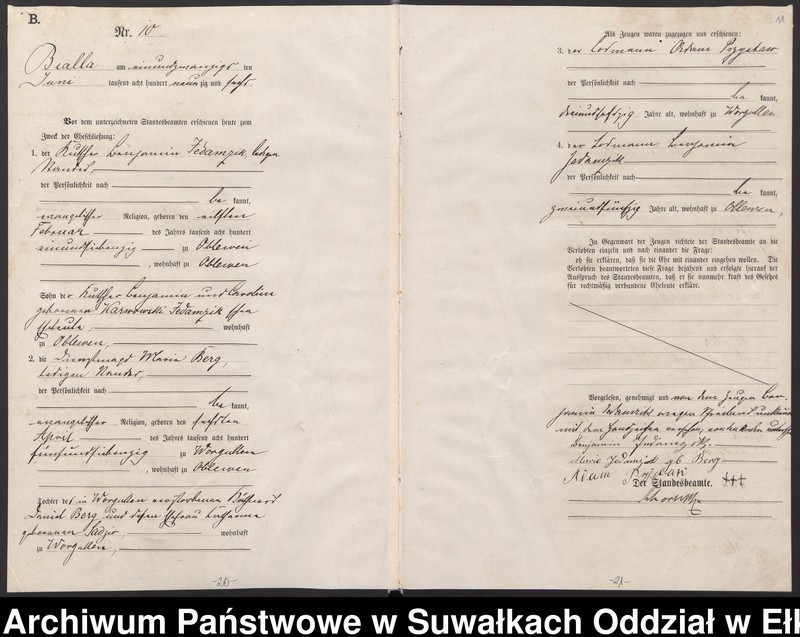 B.
Nr. 10
Bialla am einundzwanzigs ten
Juni tausend acht hundert neunzig und sechs
Vor dem unterzeichneten Standesbeamten erschienen heute zum
Zweck der Eheschließung:
1. der Kutscher Benjamin Jedamzik, ledigen
Standes,
der Persönlichkeit nach
be kannt,
evangelischer Religion, geboren den elften
Februar des Jahres tausend acht hundert
einundsiebenzig zu Oblewen
, wohnhaft zu Oblewen
Sohn der Kutscher Benjamin und Caroline
geborenen Karwowski Jedamzik schen
Eheleute, wohnhaft
zu Oblewen,
2. die Dienstmagd Maria Berg,
ledigen Standes,
der Persönlichkeit nach
be kannt,
evangelischer Religion, geboren den sechsten
April des Jahres tausend acht hundert
fünfundsiebenzig zu Worgullen
, wohnhaft zu Oblewen
Tochter des in Worgullen verstorbenen
David Berg und dessen Ehefrau Catharina
geborenen wohnhaft
zu Worgullen,
-20-
11
Als Zeugen waren zugezogen und erschienen:
3. der Losmann Adam
der Persönlichkeit nach
be kannt,
Jahre alt, wohnhaft zu Worgullen
4. der Losmann Benjamin
Jedamzik
der Persönlichkeit nach
be kannt,
zweiundfünfzig Jahre alt, wohnhaft zu Oblewen,
In Gegenwart der Zeugen richtete der Standesbeamte an die
Verlobten einzeln und nach einander die Frage:
ob sie erklären, daß sie die Ehe mit einander eingehen wollen. Die
Verlobten beantworteten diese Frage bejahend und erfolgte hierauf der
Ausspruch des Standesbeamten, daß er sie nunmehr kraft des Gesetzes
für rechtmäßig verbundene Eheleute erkläre.
Vorgelesen, genehmigt und von dem Zeugen Ben-
jamin Jedamzik wegen
mit dem Handzeichen versehen, von
Benjamin Jedamzik.
Marie Jedamzik gb Berg
Adam
Der Standesbeamte. +++
-21-
Archiwum Państwowe w Suwałkach Oddział w Eł